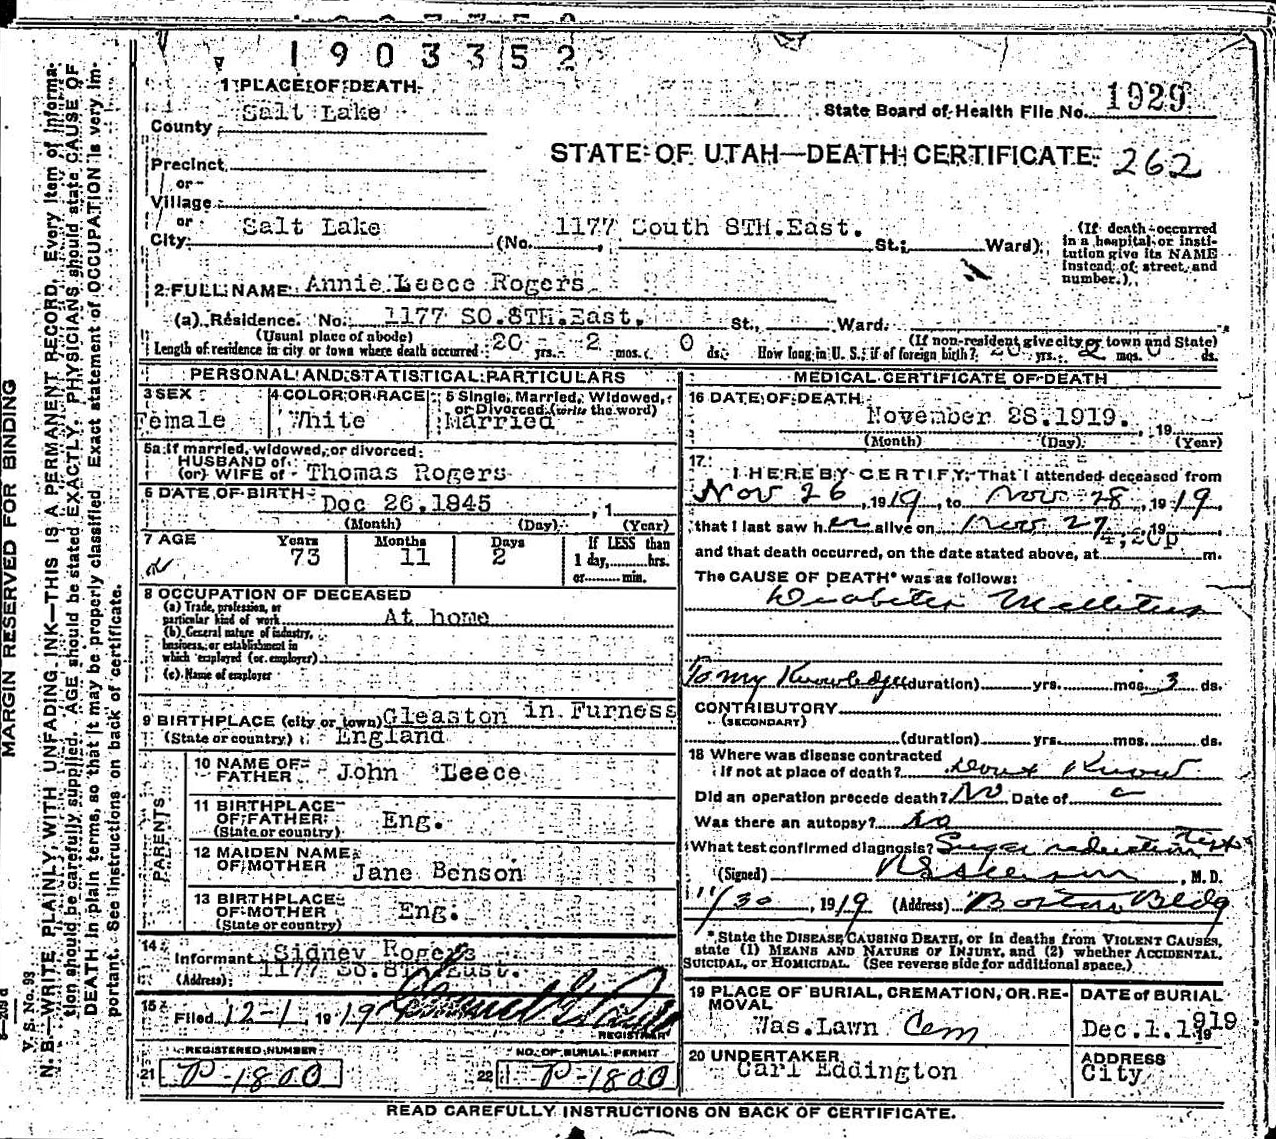 1903352
1 PLACE OF DEATH
State Board of Health File No. 1929
County Salt Lake
STATE OF UTAH—DEATH CERTIFICATE 262
Precinct
or
Village
or
City Salt Lake (No. 1177 South 8TH.East. St.; Ward)
(If death occurred in a hospital or institution give its NAME instead of street and number.)
2 FULL NAME Annie Leece Rogers
(a) Residence. No. 1177 SO.8TH.East. St., Ward.
(Usual place of abode) (If non-resident give city or town and State)
Length of residence in city or town where death occurred 20 yrs. 2 mos. 0 ds. How long in U. S. if of foreign birth? 20 yrs. 2 mos. 0 ds.
PERSONAL AND STATISTICAL PARTICULARS
3 SEX
Female
4 COLOR OR RACE
White
5 Single, Married, Widowed, or Divorced (write the word)
Married
5a If married, widowed, or divorced
HUSBAND of
(or) WIFE of Thomas Rogers
6 DATE OF BIRTH Dec 26,1845 , 1
(Month) (Day) (Year)
7 AGE Years Months Days
73 11 2
If LESS than
1 day, hrs.
or min.
8 OCCUPATION OF DECEASED
(a) Trade, profession, or
particular kind of work At home
(b) General nature of industry,
business, or establishment in
which employed (or employer)
(c) Name of employer
9 BIRTHPLACE (city or town) Gleaston in Furness
(State or country) England
PARENTS
10 NAME OF FATHER John Leece
11 BIRTHPLACE OF FATHER (State or country) Eng.
12 MAIDEN NAME OF MOTHER Jane Benson
13 BIRTHPLACE OF MOTHER (State or country) Eng.
14
Informant Sidney Rogers
(Address) 1177 So.8TH East.
15
Filed 12-1, 1919
REGISTRAR
REGISTERED NUMBER
21 P-1800
NO. OF BURIAL PERMIT
22 P-1800
MEDICAL CERTIFICATE OF DEATH
16 DATE OF DEATH
November 28.1919. , 19
(Month) (Day) (Year)
17
I HEREBY CERTIFY, That I attended deceased from
Nov 26, 1919, to Nov 28, 1919
that I last saw her alive on Nov 27, 19
and that death occurred, on the date stated above, at 4,20p m.
The CAUSE OF DEATH* was as follows:
Diabetes Mellitus
To my Knowledge (duration) yrs. mos. 3 ds.
CONTRIBUTORY
(SECONDARY)
(duration) yrs. mos. ds.
18 Where was disease contracted
if not at place of death? dont Know
Did an operation precede death? No Date of
Was there an autopsy? no
What test confirmed diagnosis? Sugar reduction tests
(Signed) , M. D.
11/30, 1919 (Address) Boston Bldg
*State the DISEASE CAUSING DEATH, or in deaths from VIOLENT CAUSES,
state (1) MEANS AND NATURE OF INJURY, and (2) whether ACCIDENTAL,
SUICIDAL, or HOMICIDAL. (See reverse side for additional space.)
19 PLACE OF BURIAL, CREMATION, OR REMOVAL
Was.Lawn Cem
DATE of BURIAL
Dec.1.1919 19
20 UNDERTAKER
Carl Eddington
ADDRESS
City
READ CAREFULLY INSTRUCTIONS ON BACK OF CERTIFICATE.
MARGIN RESERVED FOR BINDING
V. S. No. 93
N. B.—WRITE PLAINLY, WITH UNFADING INK—THIS IS A PERMANENT RECORD. Every item of information
should be carefully supplied. AGE should be stated EXACTLY. PHYSICIANS should state CAUSE OF
DEATH in plain terms, so that it may be properly classified. Exact statement of OCCUPATION is very important.
See instructions on back of certificate.